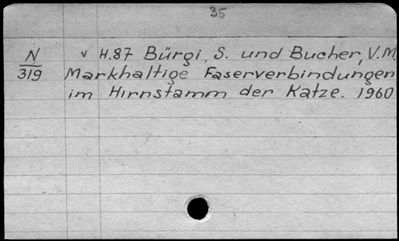 35
N v H.87 Bürgi, S. und Bucher, V.M.
319 Markhaltige Faserverbindungen
im Hirnstamm der Katze. 1960